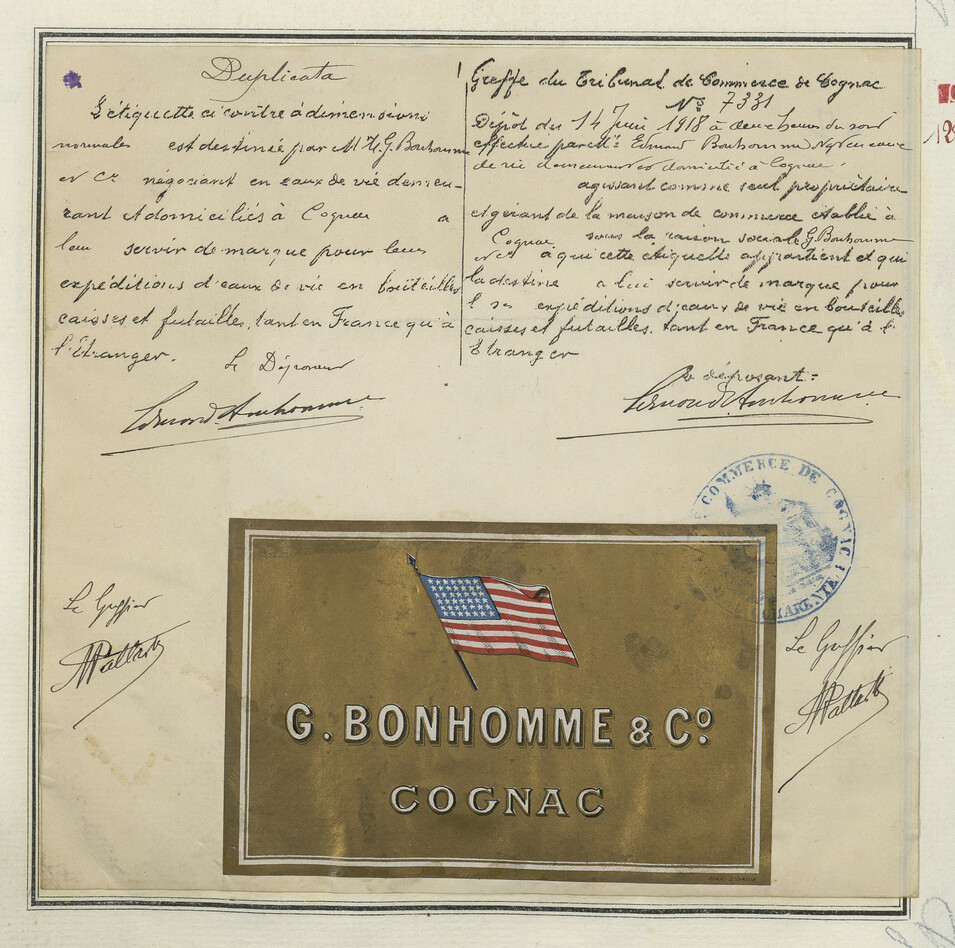 Duplicata
L'étiquette ci contre à dimensions
normales est destinée par M G. Bonhomme
et Cº négociant en eaux de vie demeu-
rant et domiciliés à Cognac a
leur servir de marque pour leurs
expéditions d'eaux de vie en bouteilles
caisses et futailles, tant en France qu'à
l'Étranger.
Le Déposant
Edmond Bonhomme
Greffe du Tribunal de Commerce de Cognac
Nº 7331
Dépôt du 14 Juin 1918 à deux heures du soir
effectué par Mr Edmond Bonhomme Ngt en eaux
de vie demeurant et domicilié à Cognac.
agissant comme seul propriétaire
et gérant de la maison de commerce établie à
Cognac sous la raison sociale G. Bonhomme
et Cº à qui cette étiquette appartient et qui
la destine a lui servir de marque pour
ses expéditions d'eaux de vie en bouteilles
caisses et futailles. tant en France qu'à l'
Etranger
Le déposant:
Edmond Bonhomme
COMMERCE DE COGNAC
CHARENTE
Le Greffier
Le Greffier
G. BONHOMME & Cº
COGNAC